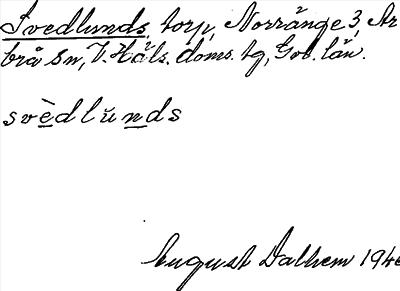 Svedlunds, torp, Norränge 3, Ar
brå sn, V. Häls. doms. tg, Gvl. län.
svèdlŭnds
August Dalhem 1940